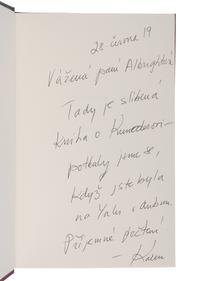 28. června 19
Vážená paní Albrightová
Tady je slíbená
kniha o
potkaly jsme se,
když jste byla
na Yalu v dubnu.
Příjemné počtení
– Karen